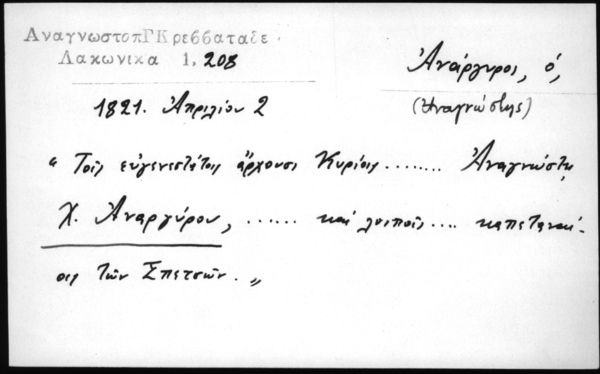 ΑναγνωστοπΓΚρεββαταδε.
Λακωνικα 1, 208
Ἀνάργυροι, ὁ,
(Ἀναγνώστης)
1821. Ἀπριλίου 2
"Τοῖς εὐγενεστάτοις ἄρχουσι Κυρίοις........ Ἀναγνώστῃ
Χ. Ἀναργύρου, ...... καὶ λοιποῖς .... καπεταναί-
οις τῶν Σπετσῶν. "